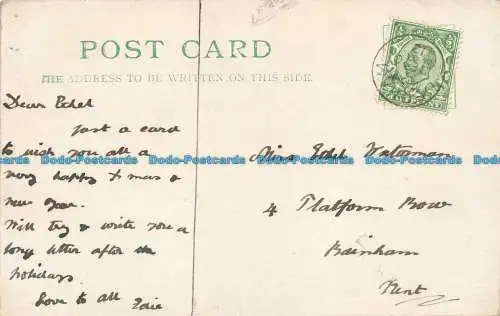 POST CARD
THE ADDRESS TO BE WRITTEN ON THIS SIDE.
Dear Ethel
Just a card
to wish you all a
very happy Xmas &
new year.
Will try & write you a
long letter after the
holidays.
Love to all Edie
Miss Ethel Waterman
4 Platform Row
Rainham
Kent
Dodo-Postcards Dodo-Postcards Dodo-Postcards Dodo-Postcards Dodo-Postcards Dodo-Postcards